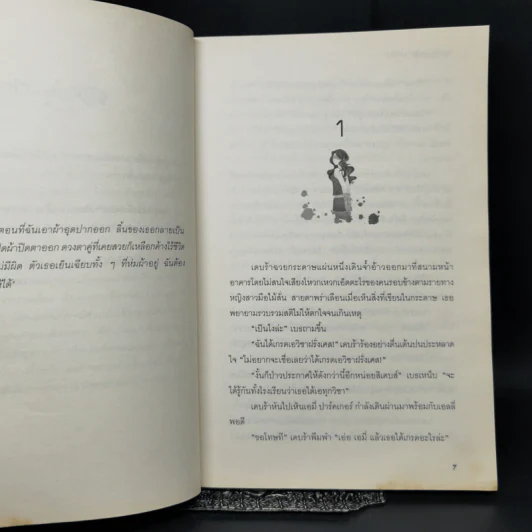 ตอนที่ฉันเอาผ้าอุดปากออก ลิ้นของเธอกลายเป็น
ผ้าปิดตาออก ดวงตาคู่ที่เคยสวยก็เหลือกค้างไร้ชีวิต
ไม่มีผิด ตัวเธอเย็นเฉียบทั้ง ๆ ที่ห่มผ้าอยู่ ฉันต้อง
ได้'
1
เดบร้าฉวยกระดาษแผ่นหนึ่งเดินจ้ำอ้าวออกมาที่สนามหน้า
อาคารโดยไม่สนใจเสียงโหวกเหวกเอ็ดตะโรของคนรอบข้างตามรายทาง
หญิงสาวมือไม้สั่น สายตาพร่าเลือนเมื่อเห็นสิ่งที่เขียนในกระดาษ เธอ
พยายามรวบรวมสติไม่ให้ตกใจจนเกินเหตุ
"เป็นไงล่ะ" เบธถามขึ้น
"ฉันได้เกรดเอวิชาฝรั่งเศส!" เดบร้าร้องอย่างตื่นเต้นปนประหลาด
ใจ "ไม่อยากจะเชื่อเลยว่าได้เกรดเอวิชาฝรั่งเศส!"
"งั้นก็ป่าวประกาศให้ดังกว่านี้อีกหน่อยสิเดบส์" เบธเหน็บ "จะ
ได้รู้กันทั้งโรงเรียนว่าเธอได้เอทุกวิชา"
เดบร้าหันไปเห็นเอมี่ ปาร์คเกอร์ กำลังเดินผ่านมาพร้อมกับเอลลี่
พอดี
"ขอโทษที" เดบร้าพึมพำ "เอ่อ เอมี่ แล้วเธอได้เกรดอะไรล่ะ"
7